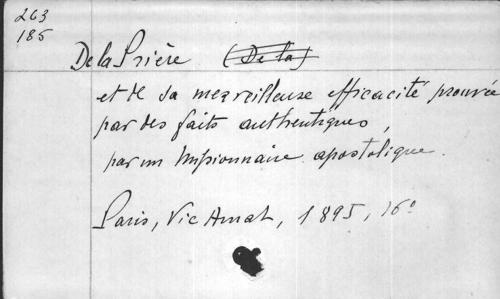 263
185
De la Prière (De la)
et de sa merveilleuse efficacité prouvée
par des faits authentiques,
par un Missionnaire apostolique.
Paris, Vic Amat, 1895, 16°